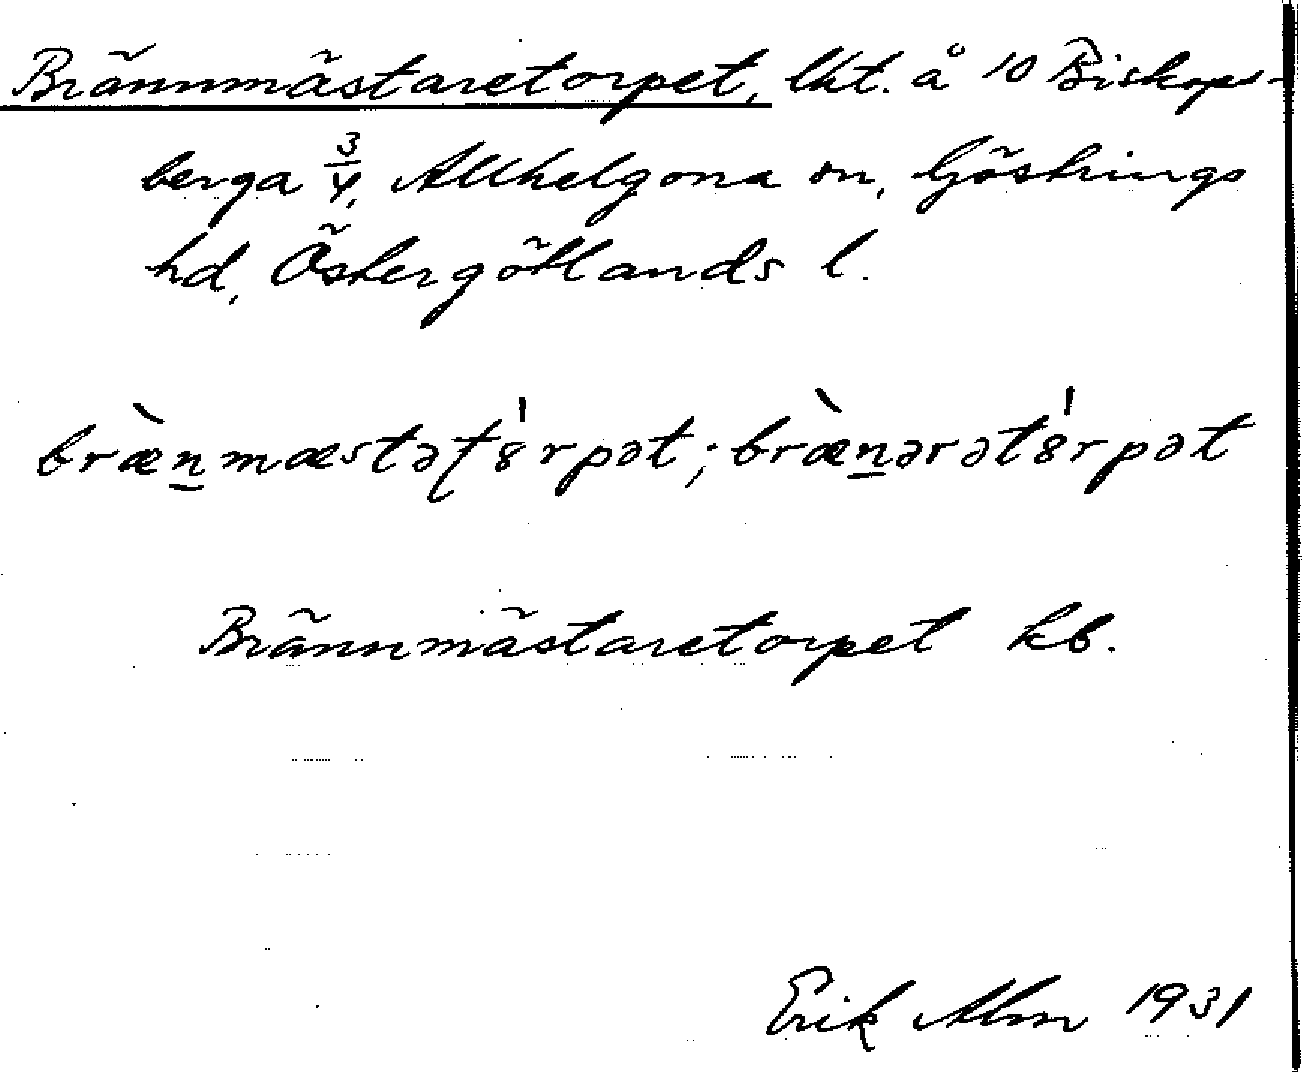 Brännmästaretorpet, lht. å 10 Biskops-
berga 3/4, Allhelgona sn, Göstrings
hd, Östergötlands l.
bræ̀n̲mæstəʈ8́rpət; bræ̀n̲ərət8́rpət
Brännmästaretorpet kb.
Erik Alm 1931